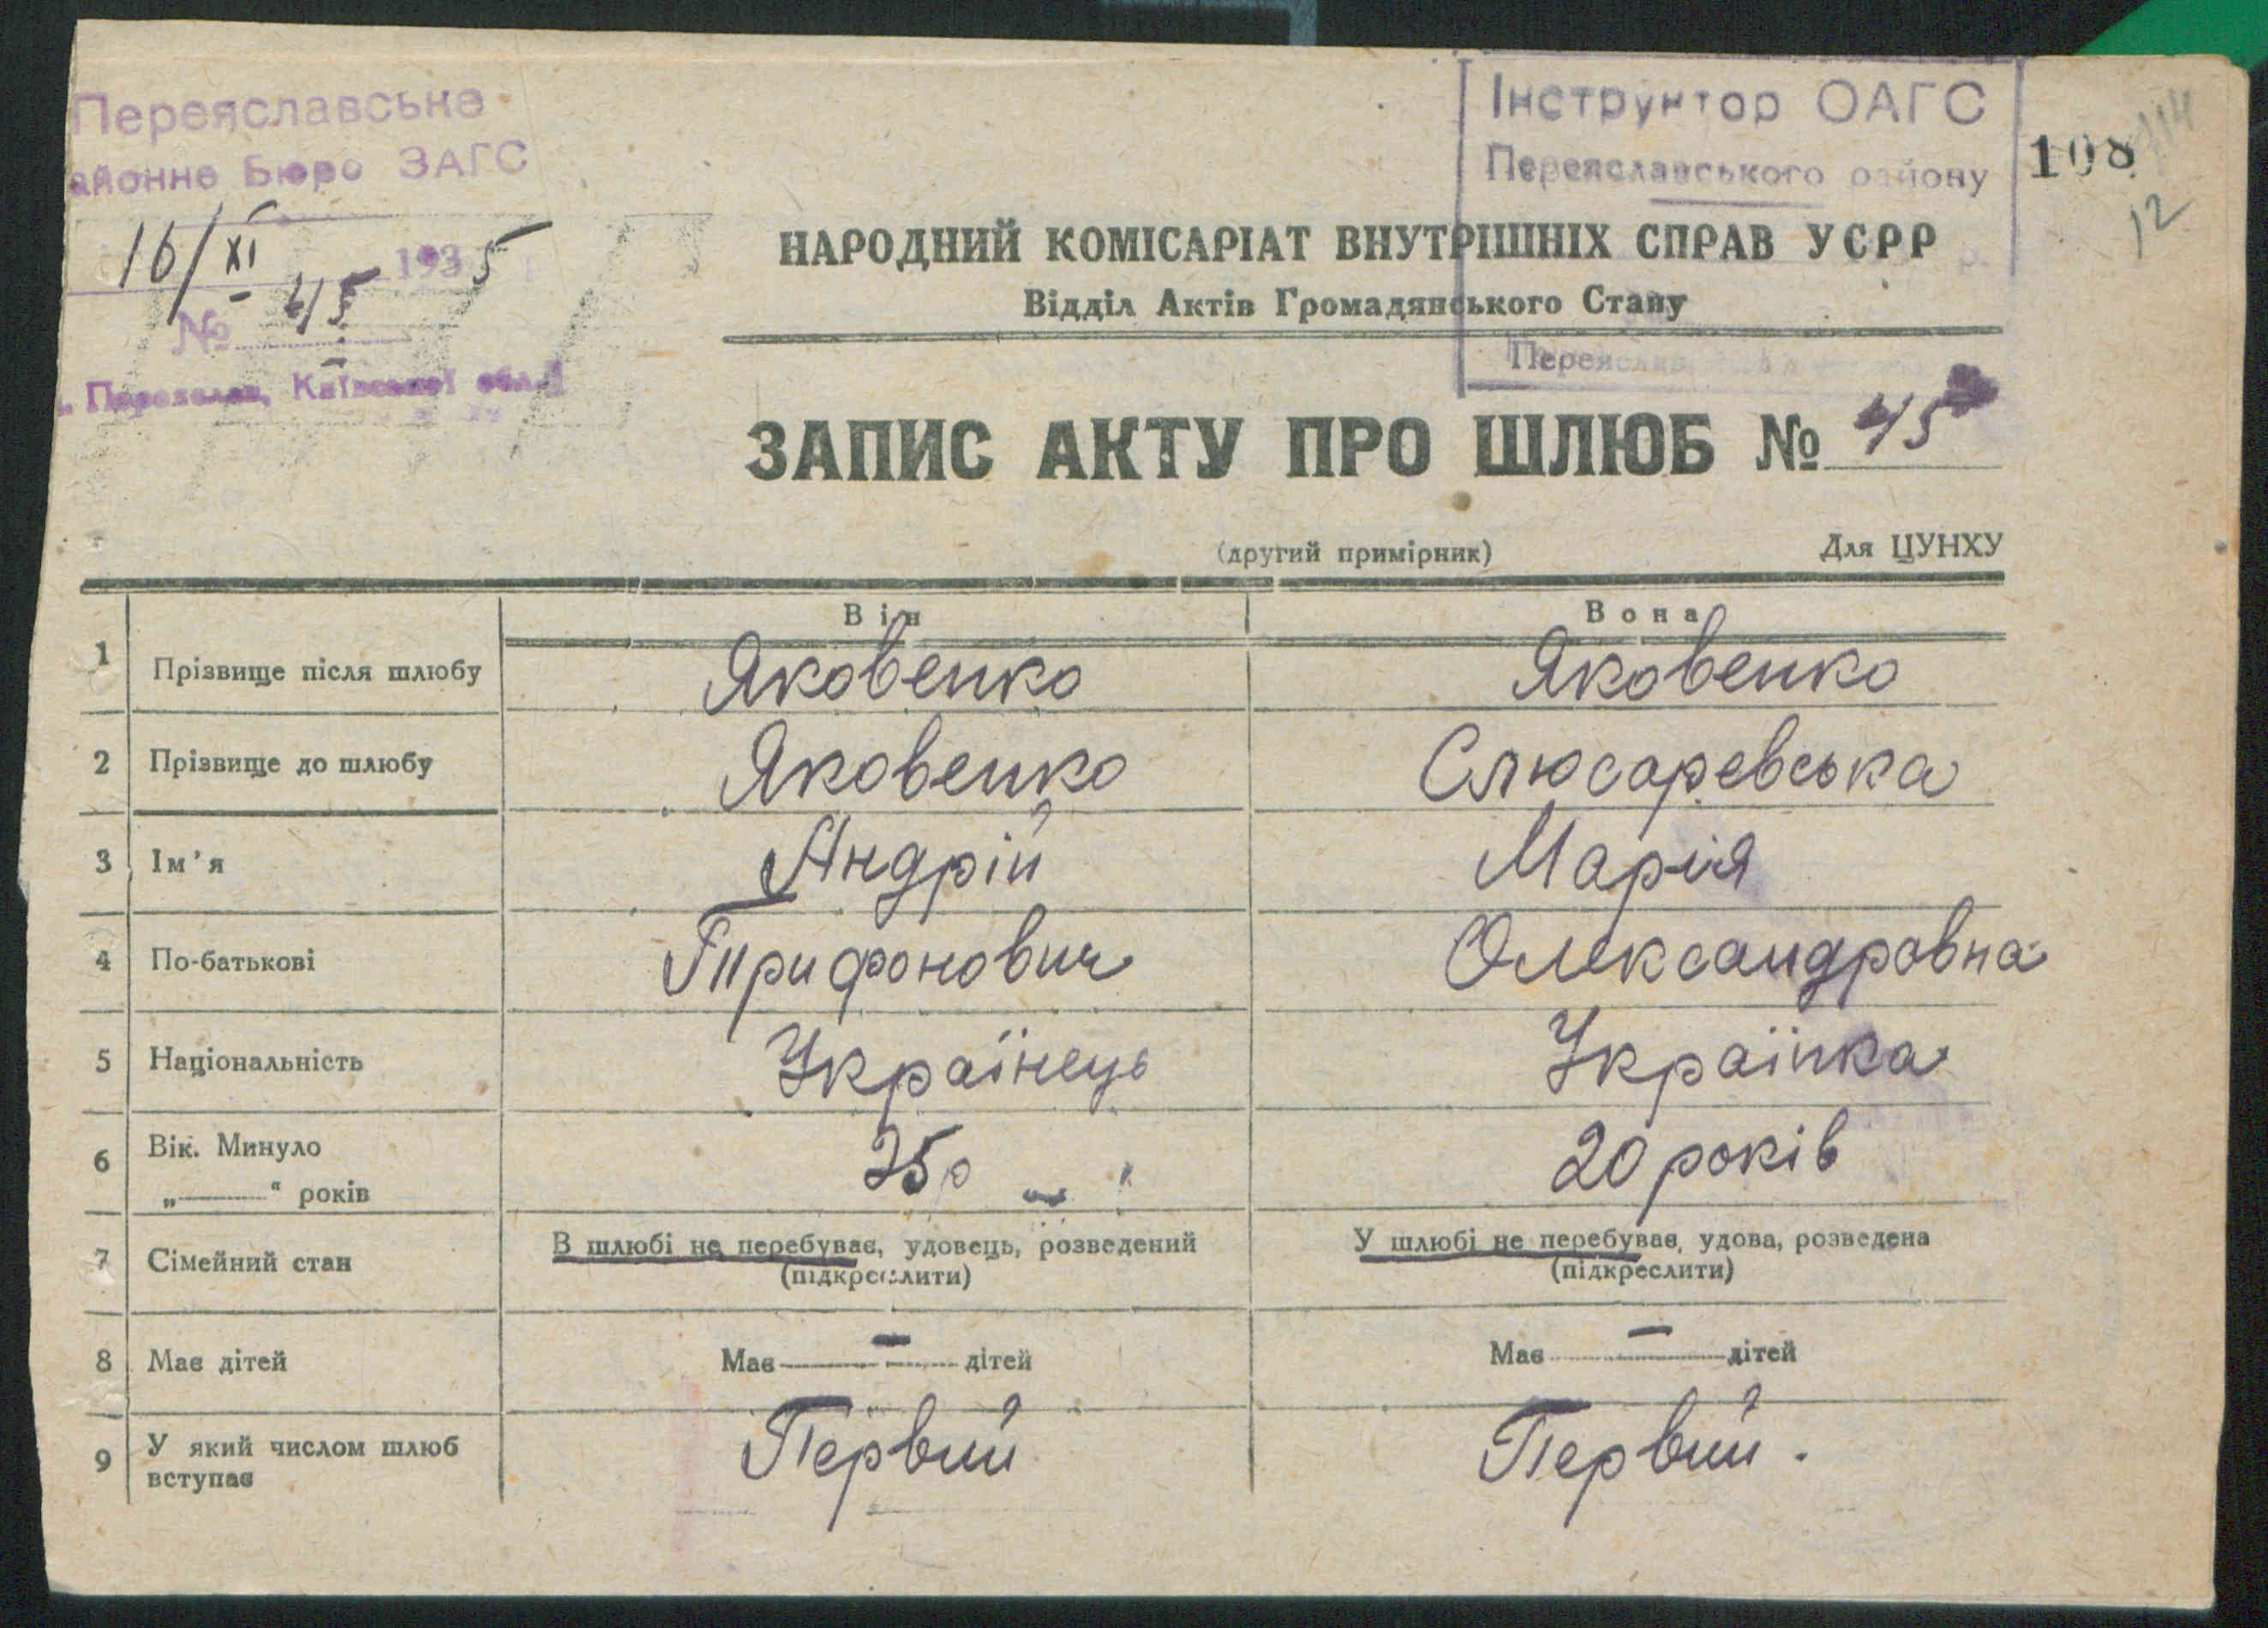 Переяславське
айонне Бюро ЗАГС
16/XI 1935
№ 45
Переяслав, Київської обл.
Інструктор ОАГС
Переяславського району
Переяслав
108
114
12
НАРОДНИЙ КОМІСАРІАТ ВНУТРІШНІХ СПРАВ УСРР
Відділ Актів Громадянського Стану
ЗАПИС АКТУ ПРО ШЛЮБ № 45
(другий примірник) Для ЦУНХУ
Він Вона
1 Прізвище після шлюбу Яковенко Яковенко
2 Прізвище до шлюбу Яковенко Слюсаревська
3 Ім'я Андрій Марія
4 По-батькові Трифонович Олександровна
5 Національність Українець Українка
6 Вік. Минуло 25 р 20 років
„———“ років
7 Сімейний стан В шлюбі не перебуває, удовець, розведений У шлюбі не перебуває, удова, розведена
(підкреслити) (підкреслити)
8 Має дітей Має — дітей Має — дітей
9 У який числом шлюб вступає Первий Первий.